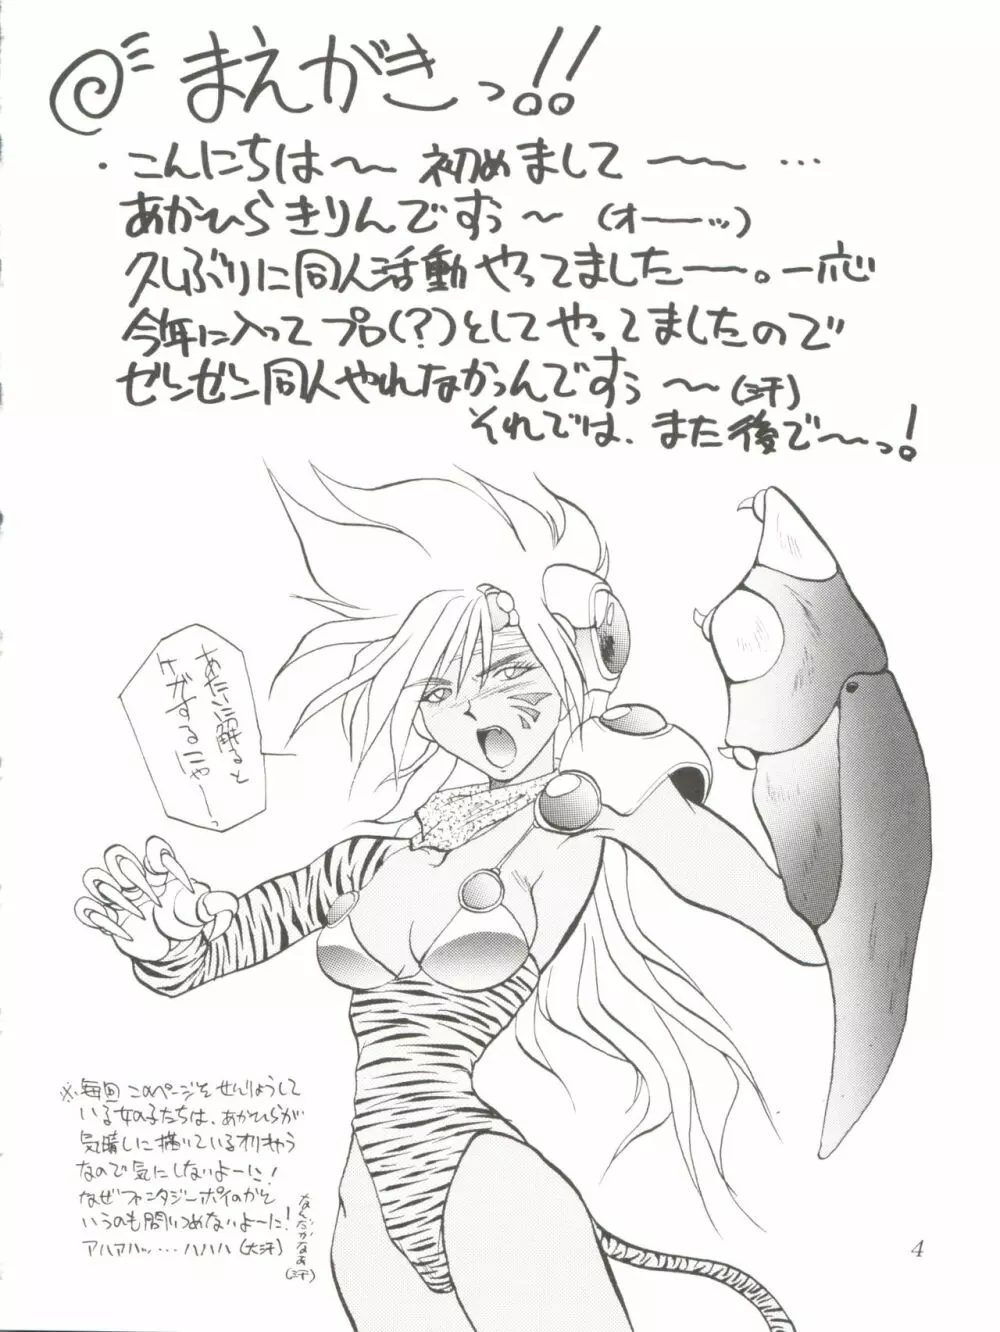 まえがきっ!!
・こんにちは〜 初めまして 〜〜 …
あかひらきりんですぅ〜 (オーーッ)
久しぶりに同人活動やってましたーー。一応
今年に入ってプロ(?)としてやってましたので
ゼンゼン同人やれなかったんですぅ 〜(汗)
それでは、また後で〜っ!
あたいに触ると
ケガするにゃーっ
※毎回このページをせんりょうして
いる女の子たちは、あかひらが
気晴しに描いているオリキャラ
なので気にしないよーに!
なぜファンタジーポイのかと
いうのも問いつめないよーに!
アハアハッ・・・ハハハ (大汗)
なんだかなぁ
(汗)
4